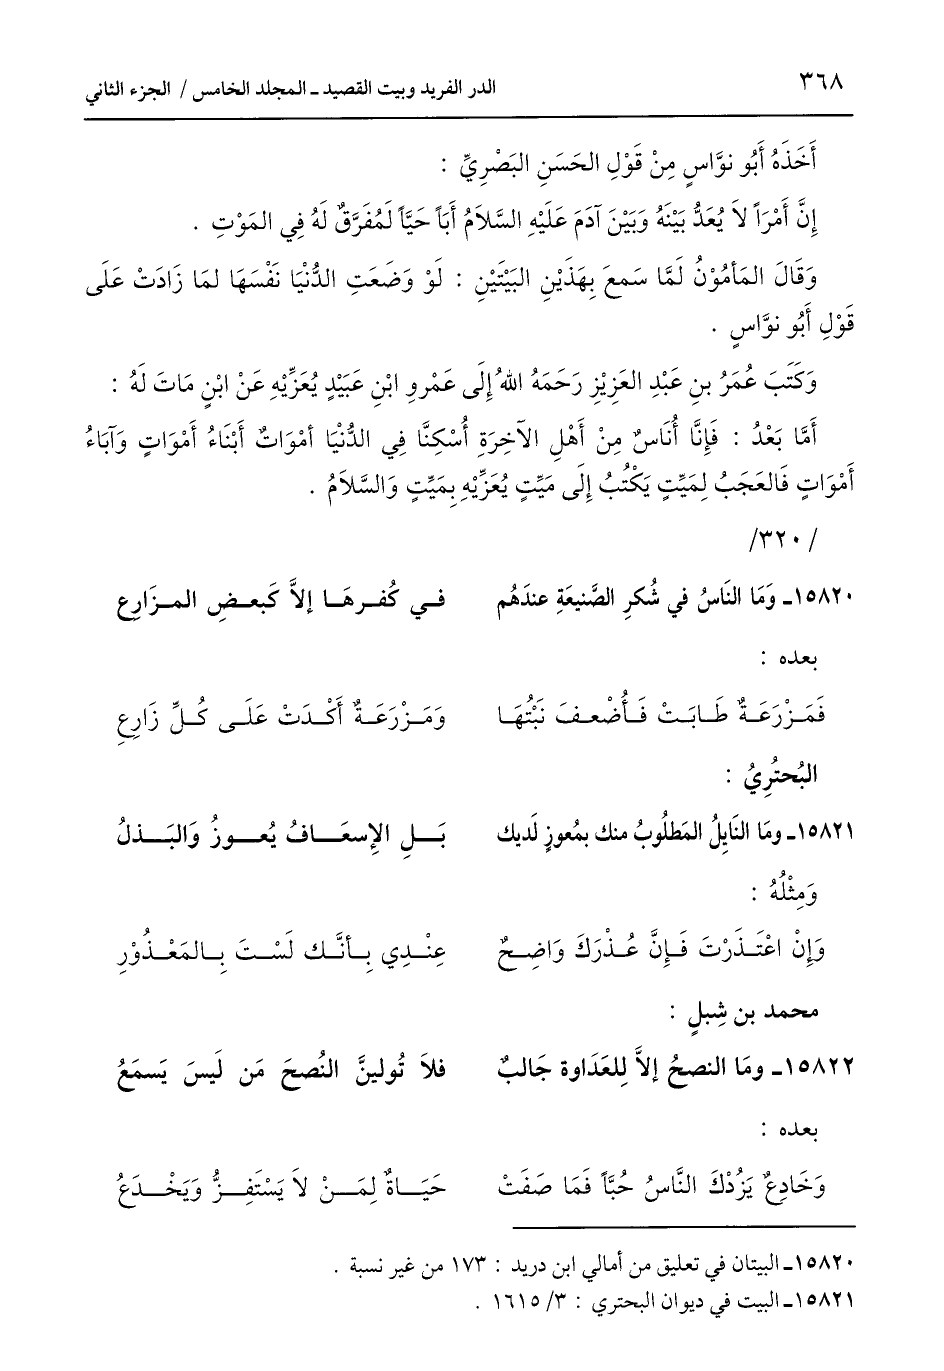 ٣٦٨ الدر الفريد وبيت القصيد ـ المجلد الخامس / الجزء الثاني
أَخَذَهُ أَبُو نوَّاسٍ مِنْ قَوْلِ الحَسَنِ البَصْرِيِّ :
إِنَّ أَمْرَاً لاَ يُعَدُّ بَيْنَهُ وَبَيْنَ آدَمَ عَلَيْهِ السَّلاَمُ أَبَاً حَيَّاً لَمُفَرَّقٌ لَهُ فِي المَوْتِ .
وَقَالَ المَأمُوْنُ لَمَّا سَمعَ بِهَذَيْنِ البَيْتَيْنِ : لَوْ وَضَعَتِ الدُّنْيَا نَفْسَهَا لمَا زَادَتْ عَلَى
قَوْلِ أَبُو نوَّاسٍ .
وَكَتَبَ عُمَرُ بنِ عَبْدِ العَزِيْزِ رَحَمَهُ اللهُ إِلَى عَمْرِو ابْنِ عَبَيْدٍ يُعَزِّيْهِ عَنْ ابْنٍ مَاتَ لَهُ :
أَمَّا بَعْدُ : فَإِنَّا أُنَاسٌ مِنْ أَهْلِ الآخِرَةِ أُسْكِنَّا فِي الدُّنْيَا أمْوَاتٌ أَبْنَاءُ أَمْوَاتٍ وَآبَاءُ
أَمْوَاتٍ فَالعَجَبُ لِمَيِّتٍ يَكْتُبُ إِلَى مَيِّتٍ يُعَزِّيْهِ بِمَيِّتٍ وَالسَّلاَمُ .
/٣٢٠/
١٥٨٢٠ـ وَمَا النَاسُ في شُكرِ الصَّنيعَةِ عندَهُم في كُفرِهَا إلاَّ كَبعضِ المزَارِعِ
بعده :
فَمَزْرَعَةٌ طَابَتْ فَأُضْعفَ نَبْتُهَا وَمَزْرَعَةٌ أَكْدَتْ عَلَى كُلِّ زَارِعِ
البُحتُرِيُّ :
١٥٨٢١ـ ومَا النَايِلُ المَطلُوبُ منك بمُعوزٍ لَديك بَلِ الإسعَافُ يُعوزُ وَالبَذلُ
وَمِثْلُهُ :
وَإِنْ اعْتَذَرْتَ فَإِنَّ عُذْرَكَ وَاضِحٌ عِنْدِي بِأنَّك لَسْتَ بِالمَعْذُوْرِ
محمد بن شِبلٍ :
١٥٨٢٢ـ ومَا النصحُ إلاَّ لِلعَدَاوة جَالبٌ فلاَ تُولينَّ النُصحَ مَن لَيسَ يَسمَعُ
بعده :
وَخَادِعٌ يَزُدْكَ النَّاسُ حُبَّاً فَمَا صَفَتْ حَيَاةٌ لِمَنْ لاَ يَسْتَفِزُّ وَيَخْدَعُ
١٥٨٢٠ـ البيتان في تعليق من أمالي ابن دريد : ١٧٣ من غير نسبة .
١٥٨٢١ـ البيت في ديوان البحتري : ٣/ ١٦١٥ .